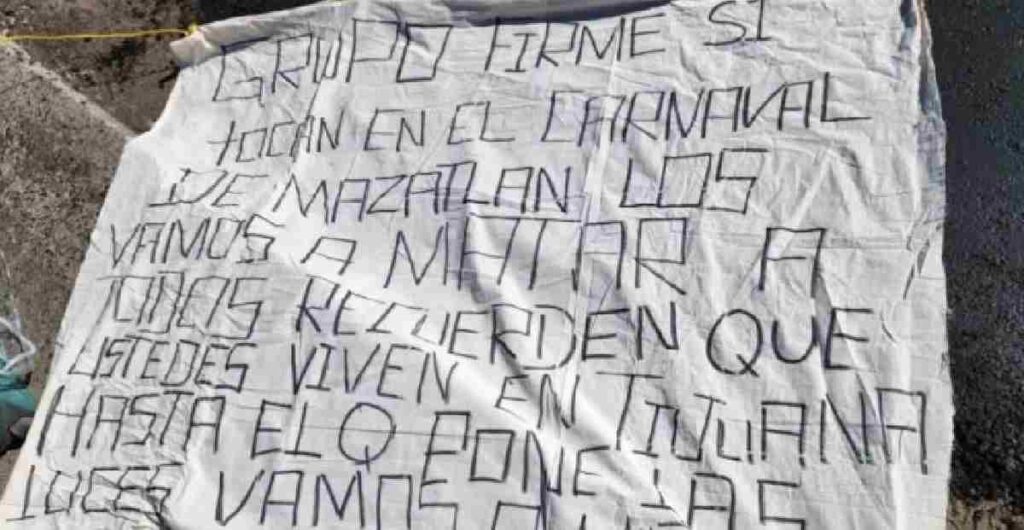 GRUPO FIRME SI
tOCAN EN EL CARNAVAL
DE MAZATLAN LOS
VAMOS A MATAR A
TODOS RECUERDEN QUE
USTEDES VIVEN EN TIJUANA
HASTA EL Q PONE LAS
LUCES VAMOS A